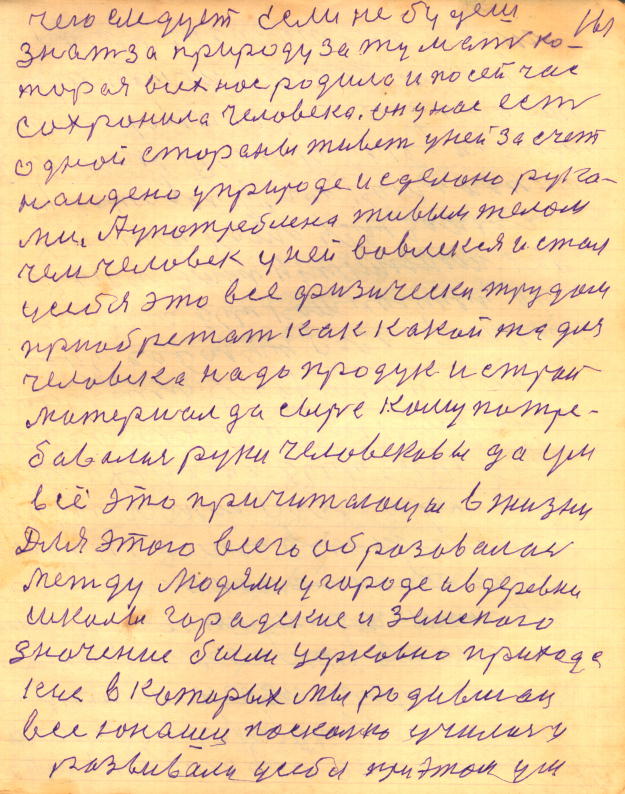 чего следует если не будеш 161
знат за природу за ту мат ко-
торая всех нас родила и по сей час
сохронила человека. он у нас есть
одной стораны живет у ней за счет
найдено у природе и сделоно рука-
ми. А употреблена живым телом
чем человек у ней вовлекся и стал
у себя это все физически трудом
приобретат как какой жа для
человека надо продук и строй
материал да сырге кому потре-
бавалася руки человековы да ум
всё это причитающие в жизни
Для этого всего образовалась
между людями у городе и в деревни
школы горадские и Земского
значение были церковно прихада
кие в которых мы родившаи
все юнаши посколко училися
развивали у себя при этом ум